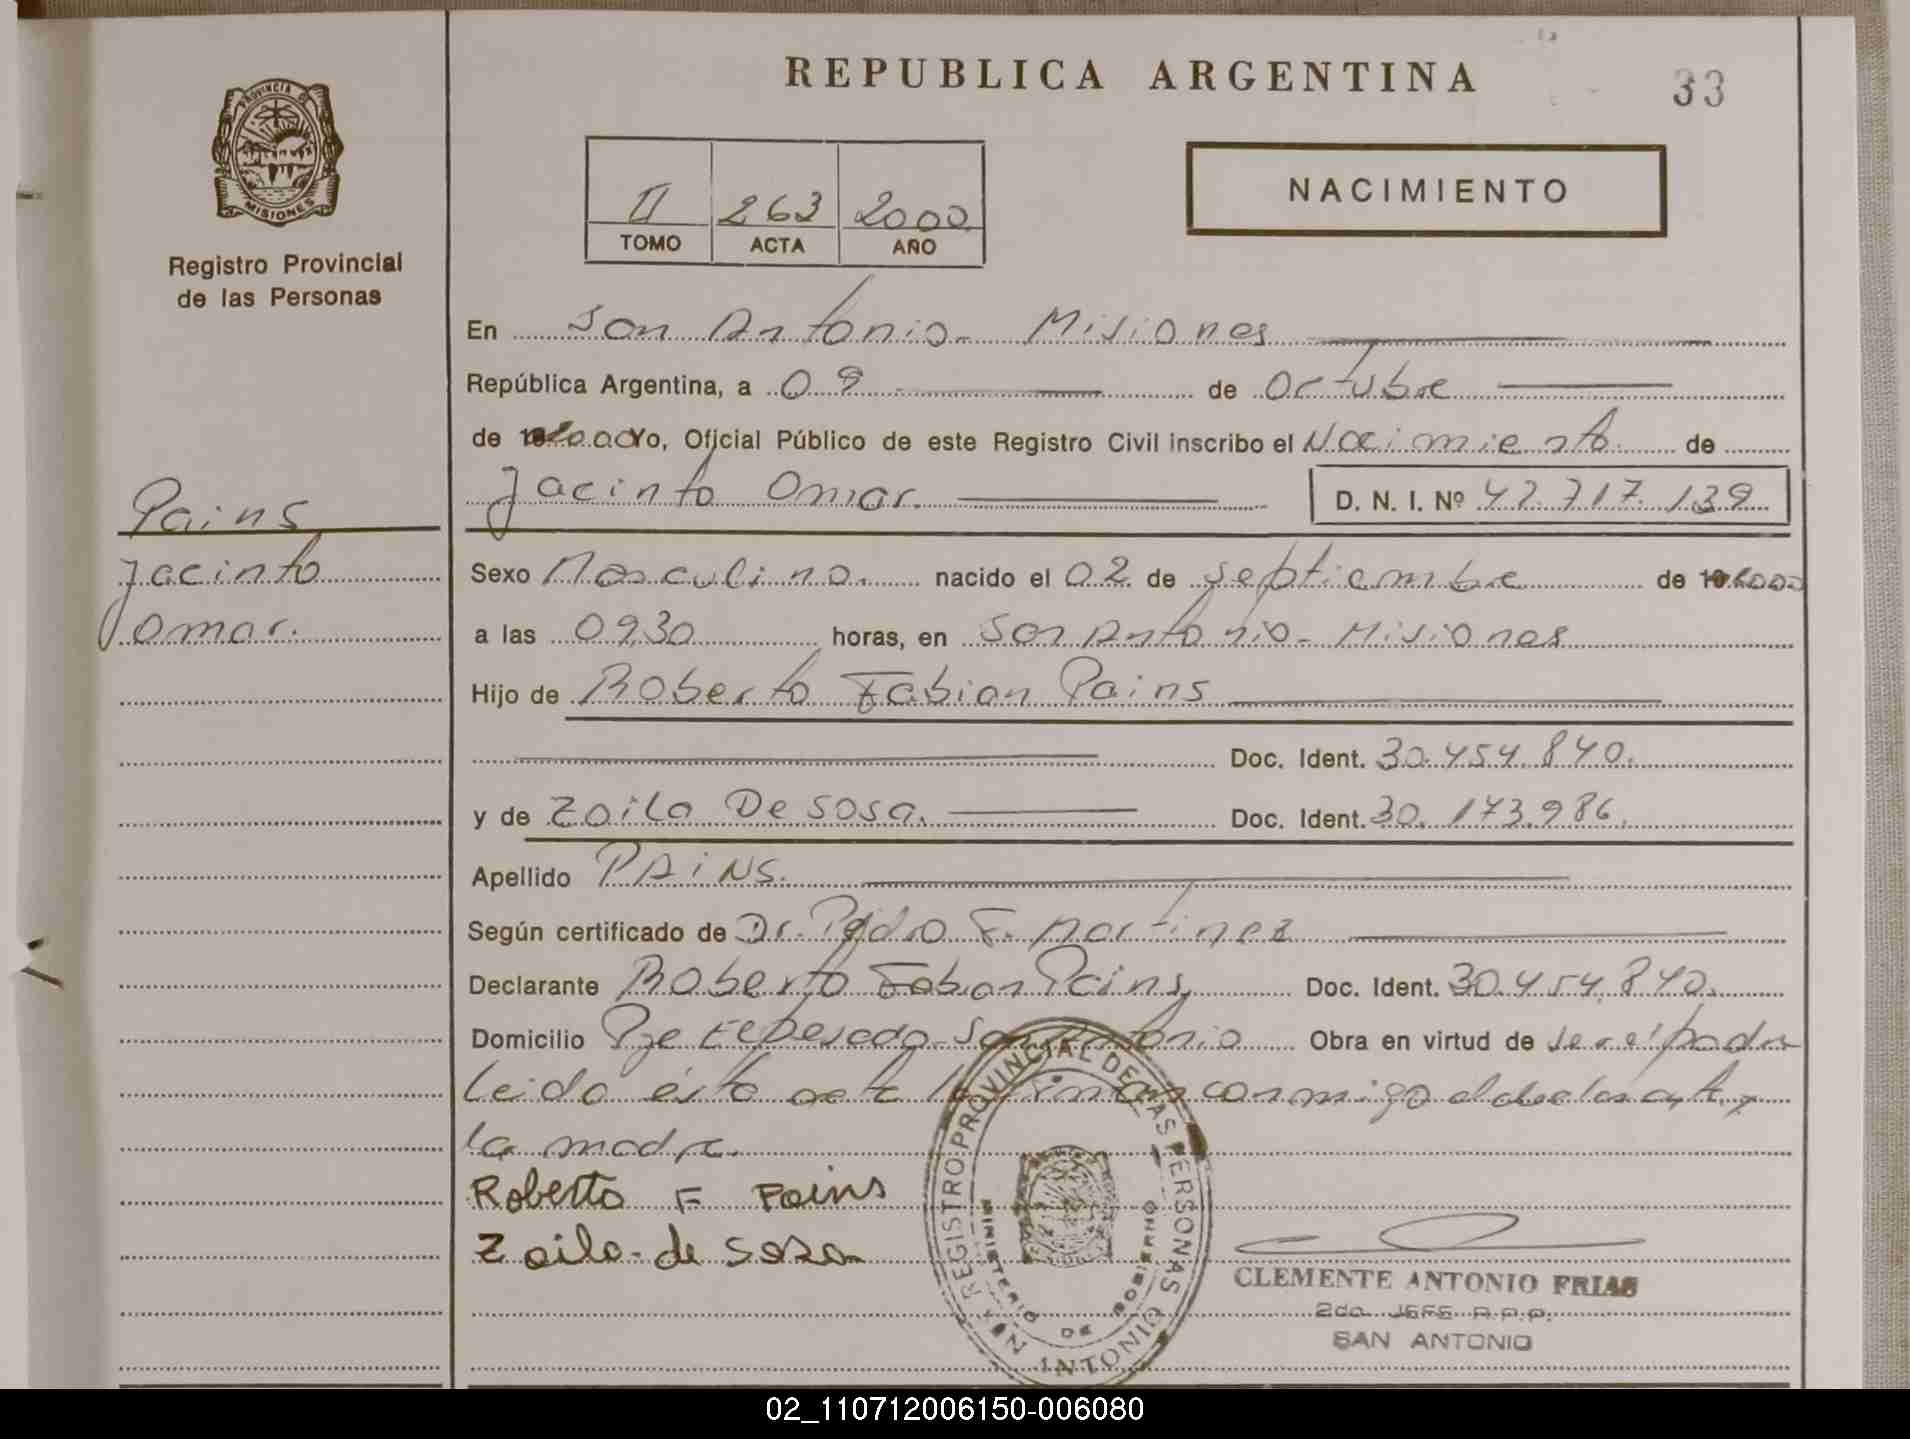 REPUBLICA ARGENTINA
33
PROVINCIA DE
MISIONES
Registro Provincial
de las Personas
II 263 2000
TOMO ACTA AÑO
NACIMIENTO
En San Antonio - Misiones
República Argentina, a 09 de Octubre
de 2000 Yo, Oficial Público de este Registro Civil inscribo el Nacimiento de
Jacinto Omar. D. N. I. Nº 42.717.139
Pains
Jacinto
Omar.
Sexo Masculino. nacido el 02 de Septiembre de 2000
a las 09,30 horas, en San Antonio - Misiones
Hijo de Roberto Fabian Pains
Doc. Ident. 30.454.840.
y de Zoila De Sosa. Doc. Ident. 30.173.986.
Apellido PAiNS.
Según certificado de Dr. Pedro F. Martinez
Declarante Roberto Fabian Pains, Doc. Ident. 30.454.840.
Domicilio Pje San Antonio Obra en virtud de ser el padre
Leida ésta acta la firman conmigo el declarante y
la madre.
Roberto F Pains
Zoila de Sosa
REGISTRO PROVINCIAL DE LAS PERSONAS
MINISTERIO DE GOBIERNO
SAN ANTONIO
CLEMENTE ANTONIO FRIAS
2do. JEFE R.P.P.
SAN ANTONIO
02_110712006150-006080